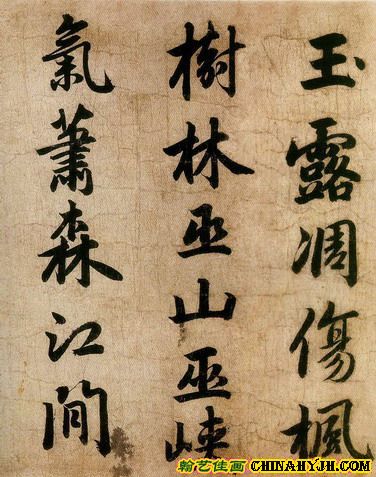 玉露凋傷楓
樹林巫山巫峽
氣蕭森江間
翰艺佳画 CHINAHYJH.COM